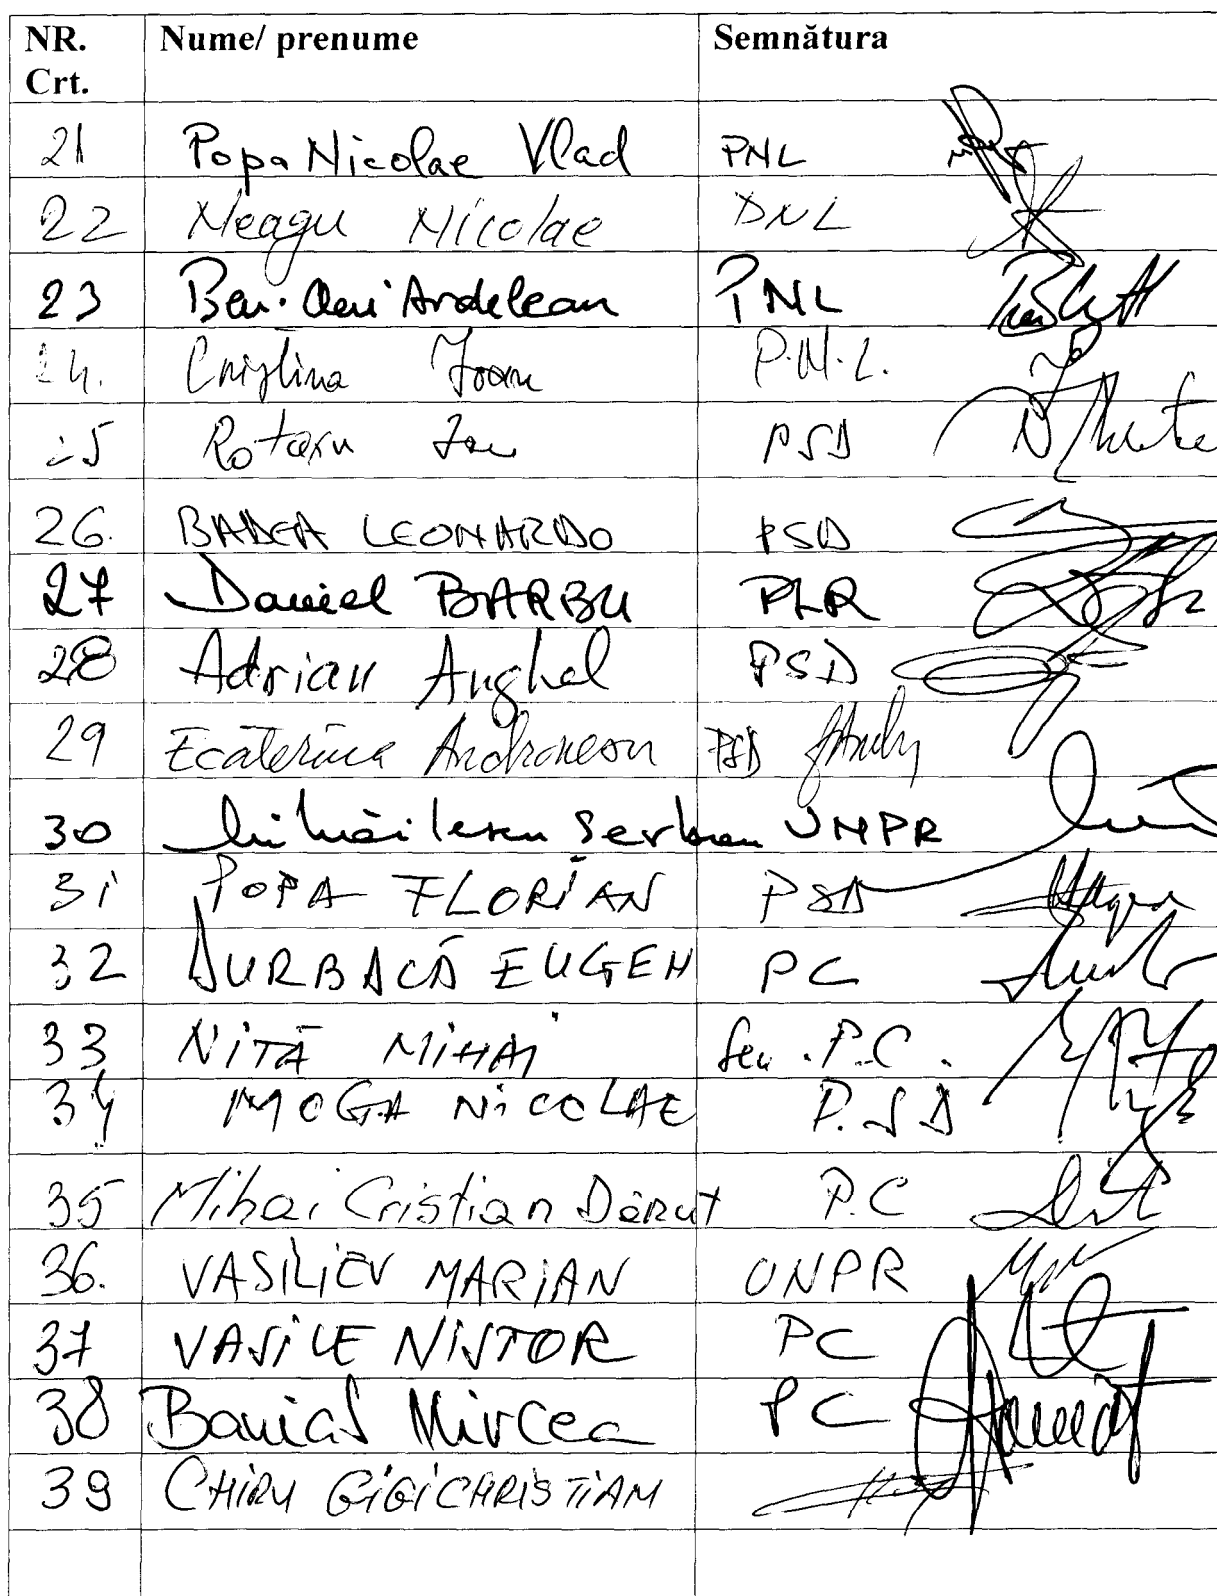 NR. Crt. Nume/ prenume Semnătura
21 Popa Nicolae Vlad PNL
22 Neagu Nicolae PNL
23 Ben-Oni Ardelean PNL
24. Cristina Ioan P.N.L.
25 Rotaru Ion PSD
26. BADEA LEONARDO PSD
27 Daniel BARBU PLR
28 Adrian Anghel PSD
29 Ecaterina Andronescu PSD
30 Mihăilescu Serban UNPR
31 POPA FLORIAN PSD
32 DURBACĂ EUGEN PC
33 NITĂ MIHAI Sen. P.C.
34 MOGA NICOLAE P.SD
35 Mihai Cristian Dănuț P.C
36. VASILIEV MARIAN UNPR
37 VASILE NISTOR PC
38 Banias Mircea PC
39 CHIRU GIGI CHRISTIAN